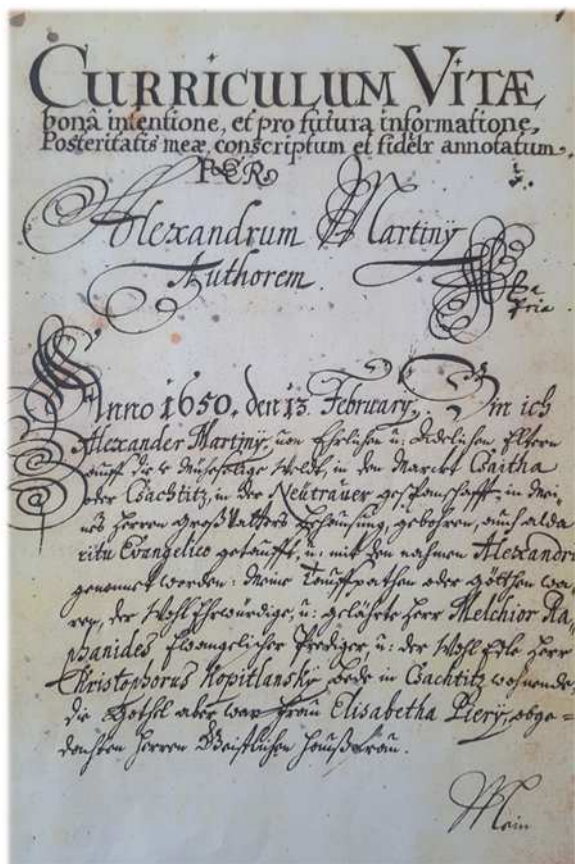 CURRICULUM VITÆ
bonâ intentione, et pro futura informatione,
Posteritatis meæ, conscriptum et fidelr annotatum.
PER
Alexandrum Martinÿ
Authorem.
Pa
tria
Anno 1650. den 13. February. Bin ich
Alexander Martinÿ, von Ehrlichen u: Adelichen Eltern
auff die Müheselige Weldt, in den Marckt Csaitha
oder Csachtitz, in der Neütrauer gespanschafft, in Mei-
nes Herren Großvatters Behausung, gebohren, auch alda
ritu Evangelico getaufft, u: mit den nahmen Alexandri
genennet worden: Meine Tauffpathen oder Götthen wa-
ren, der Wohl Ehrwürdige, u: gelährte Herr Melchior Ra-
phanides Ewangelischer Prediger, u: der Wohl Edle Herr
Christophorus Kopitlanskÿ, bede in Csachtitz wohnende,
die Gothel aber war Frau Elisabetha Pierÿ, obge=
dachten Herren Geistlichen Haußfrau.
Mein